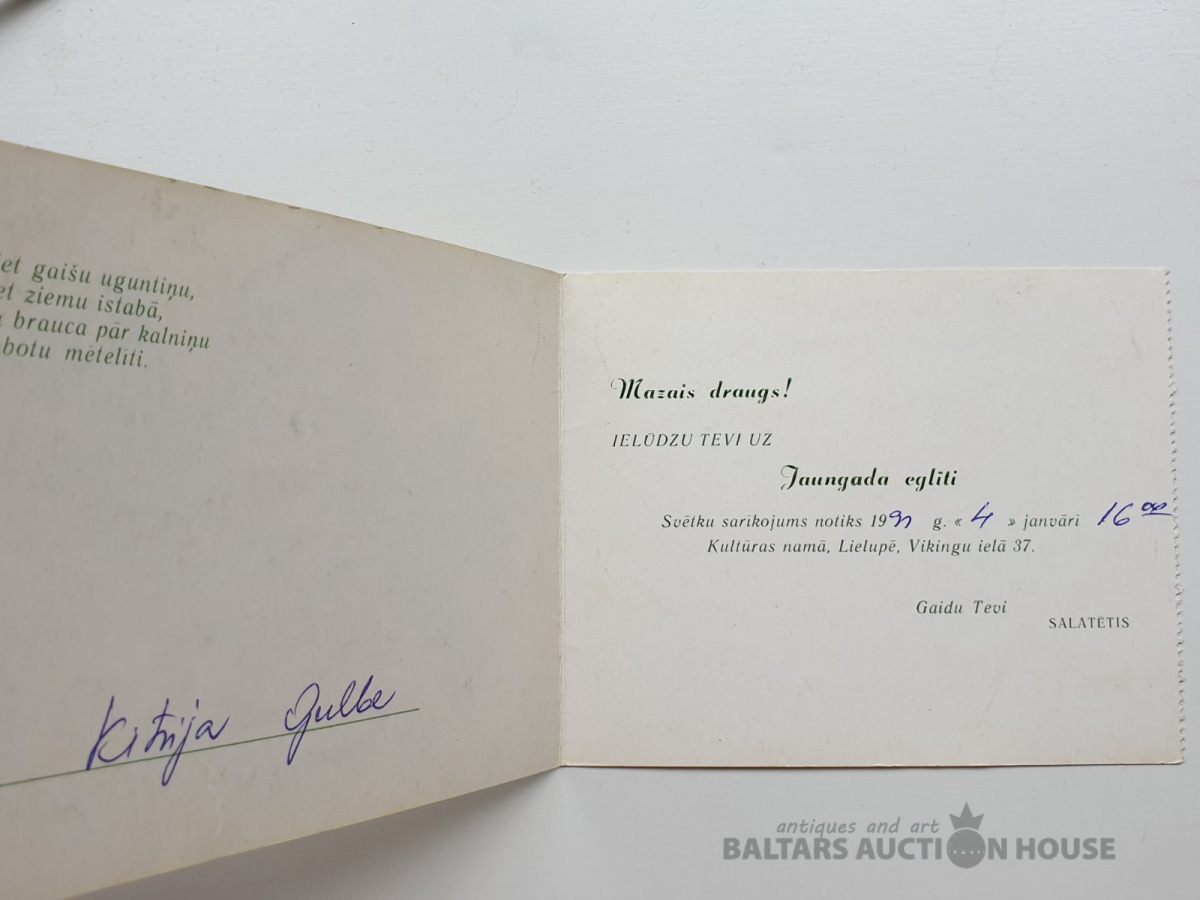 iet gaišu uguntiņu,
et ziemu istabā,
brauca pār kalniņu
botu mētelīti.
Kitija Gulbe
Mazais draugs!
IELŪDZU TEVI UZ
Jaungada eglīti
Svētku sarīkojums notiks 19 g. « 4 » janvārī 16 00
Kultūras namā, Lielupē, Vikingu ielā 37.
Gaidu Tevi
SALATĒTIS
antiques and art
BALTARS AUCTION HOUSE